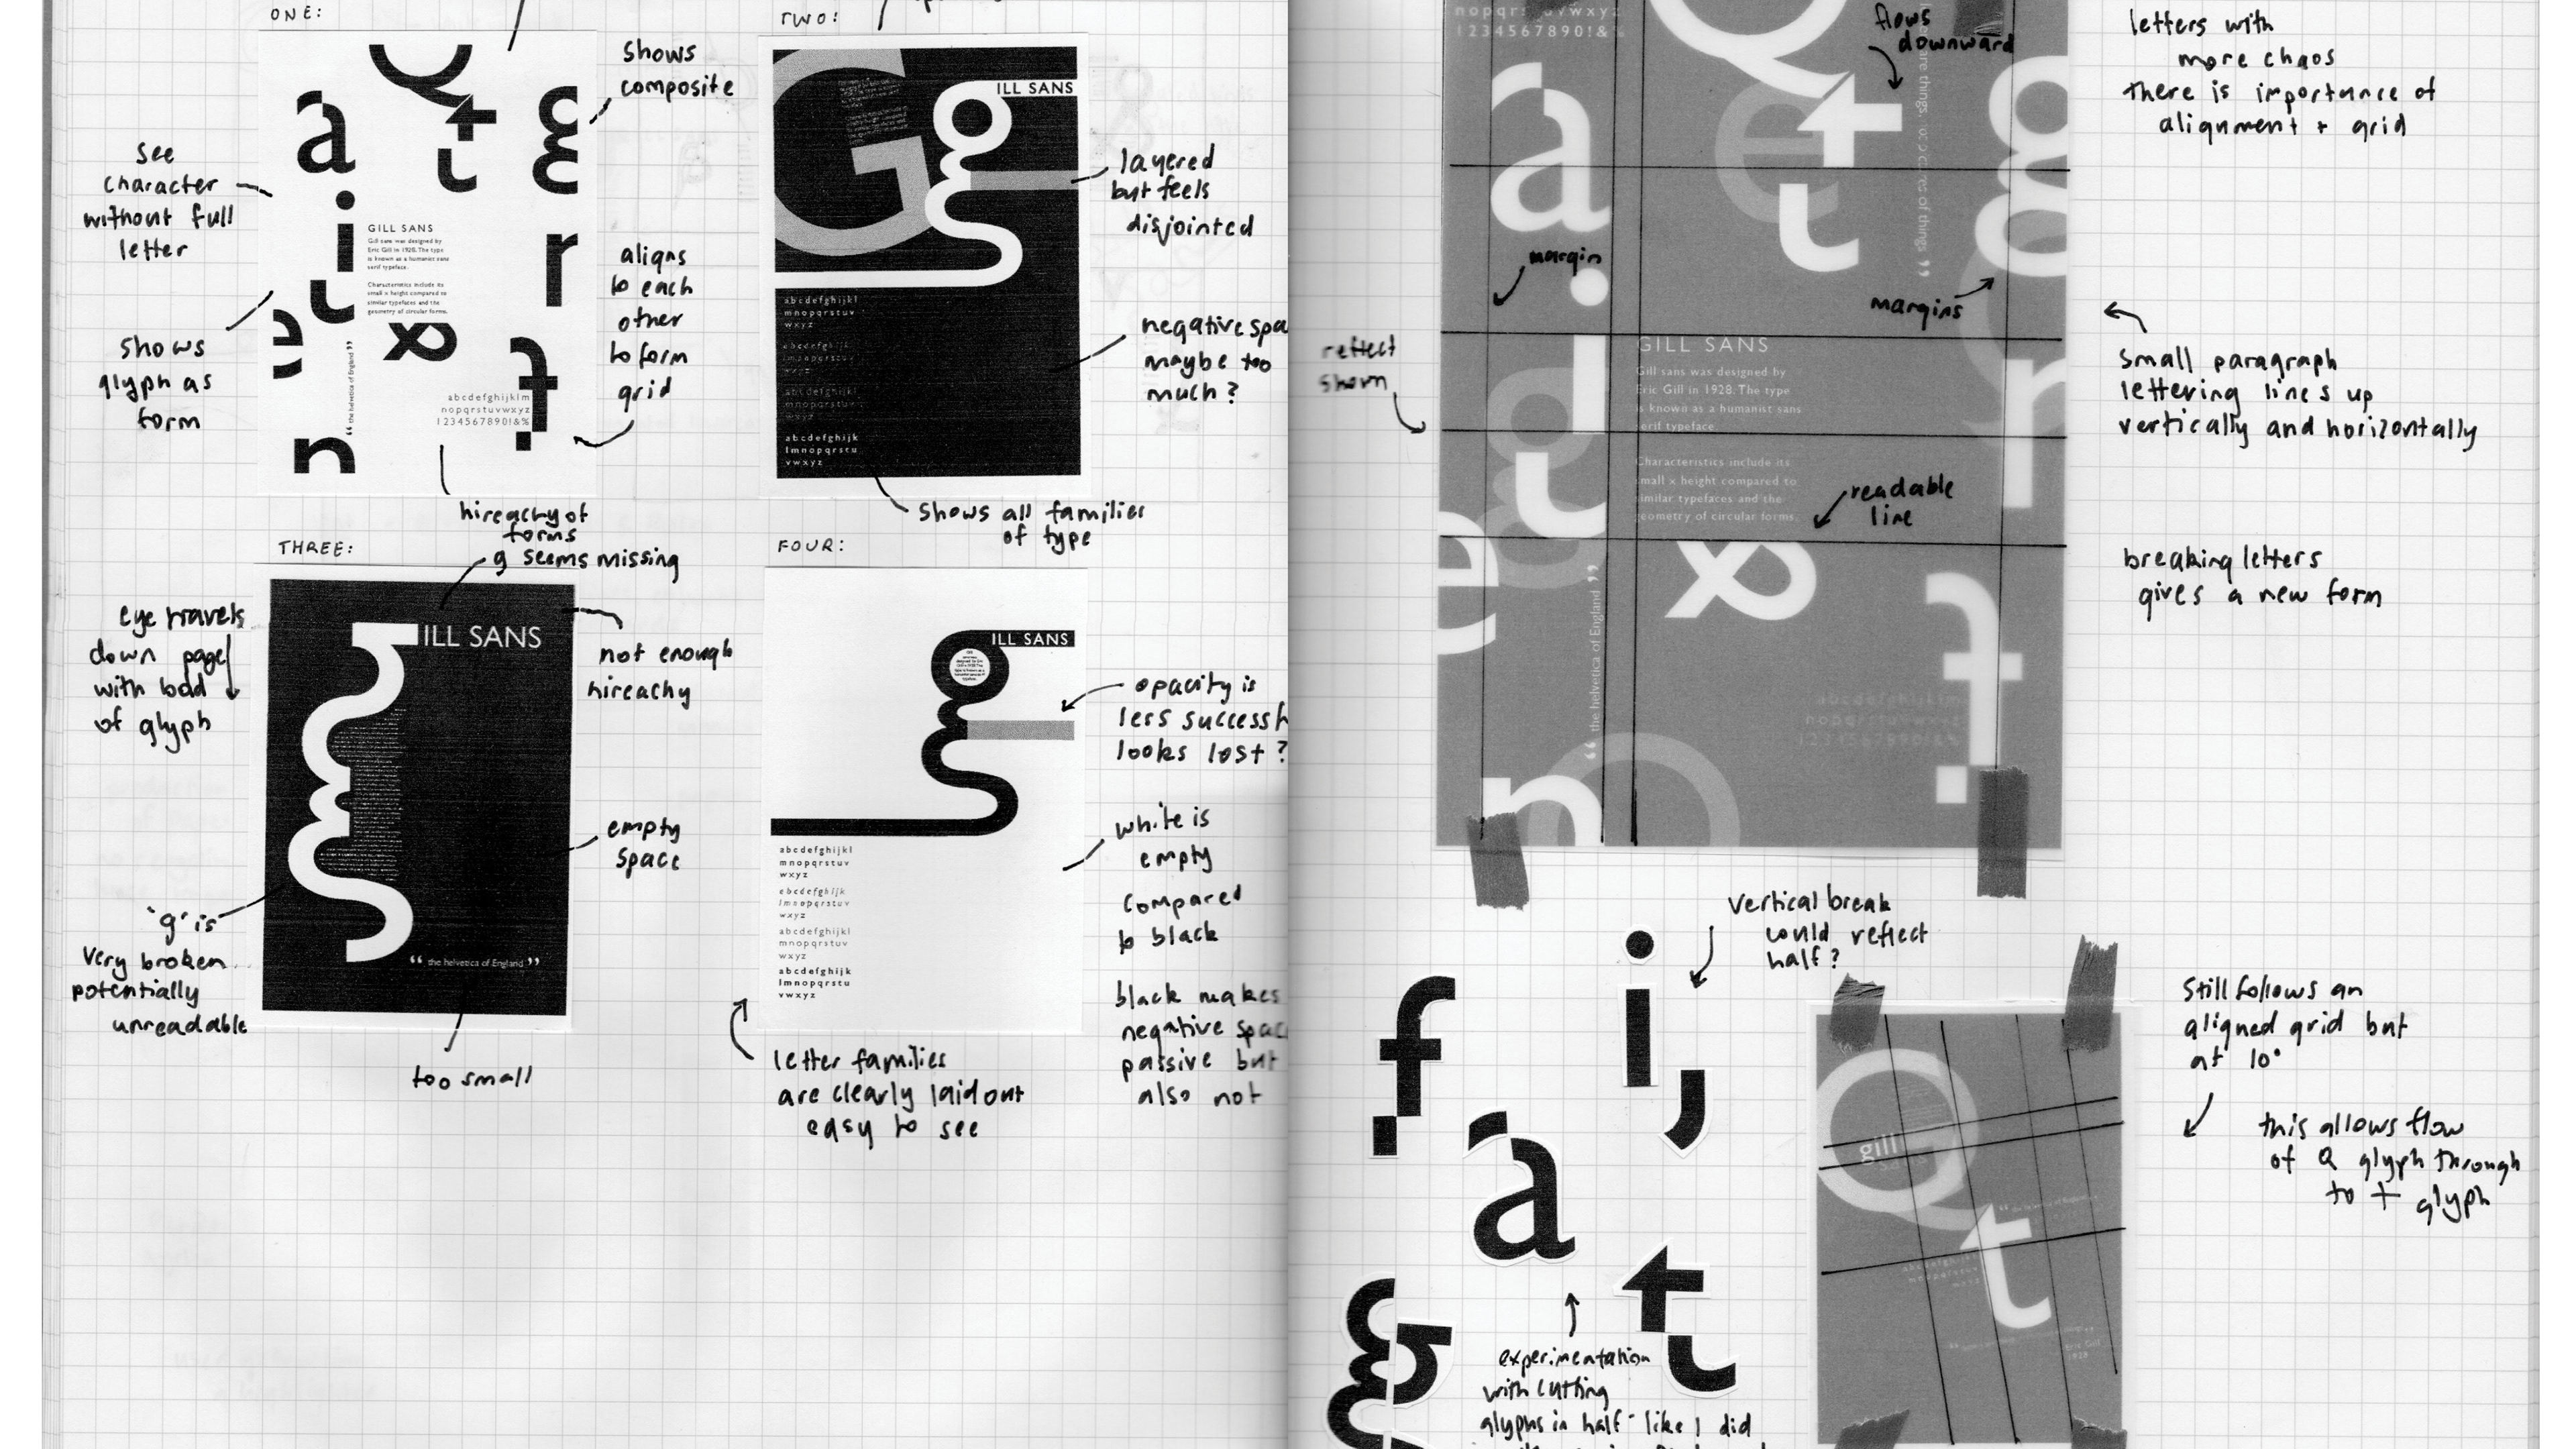 ONE:
shows
composite
see
character
without full
letter
GILL SANS
Gill sans was designed by
Eric Gill in 1928. The type
is known as a humanist sans
serif typeface.
Characteristics include its
small x height compared to
similar typefaces and the
geometry of circular forms.
aligns
to each
other
to form
grid
shows
glyph as
form
“ the helvetica of England ”
abcdefghijklm
nopqrstuvwxyz
1234567890!&%
hireachy of
forms
TWO:
ILL SANS
layered
but feels
disjointed
abcdefghijkl
mnopqrstuv
wxyz
abcdefghijk
lmnopqrstu
vwxyz
negative spa
maybe too
much?
shows all families
of type
THREE:
g seems missing
ILL SANS
eye travels
down page
with bold
of glyph
not enough
hireachy
empty
space
'g' is
very broken
potentially
unreadable
“ the helvetica of England ”
too small
FOUR:
ILL SANS
opacity is
less successf
looks lost?
white is
empty
compared
to black
black makes
negative spac
passive but
also not
abcdefghijkl
mnopqrstuv
wxyz
abcdefghijk
lmnopqrstuv
wxyz
abcdefghijkl
mnopqrstuv
wxyz
abcdefghijk
lmnopqrstu
vwxyz
letter families
are clearly laid out
easy to see
1234567890!&%
flows
downward
letters with
more chaos
there is importance of
alignment + grid
margin
margins
reflect
shown
GILL SANS
Gill sans was designed by
Eric Gill in 1928. The type
is known as a humanist sans
serif typeface
Characteristics include its
small x height compared to
similar typefaces and the
geometry of circular forms.
readable
line
small paragraph
lettering lines up
vertically and horizontally
breaking letters
gives a new form
“ the helvetica of England ”
abcdefghijklm
nopqrstuvwxyz
1234567890!&%
vertical break
could reflect
half?
f
i
a
t
g
Still follows an
aligned grid but
at 10°
this allows flow
of Q glyph through
to t glyph
gill
Eric Gill
1928
experimentation
with cutting
glyphs in half - like I did